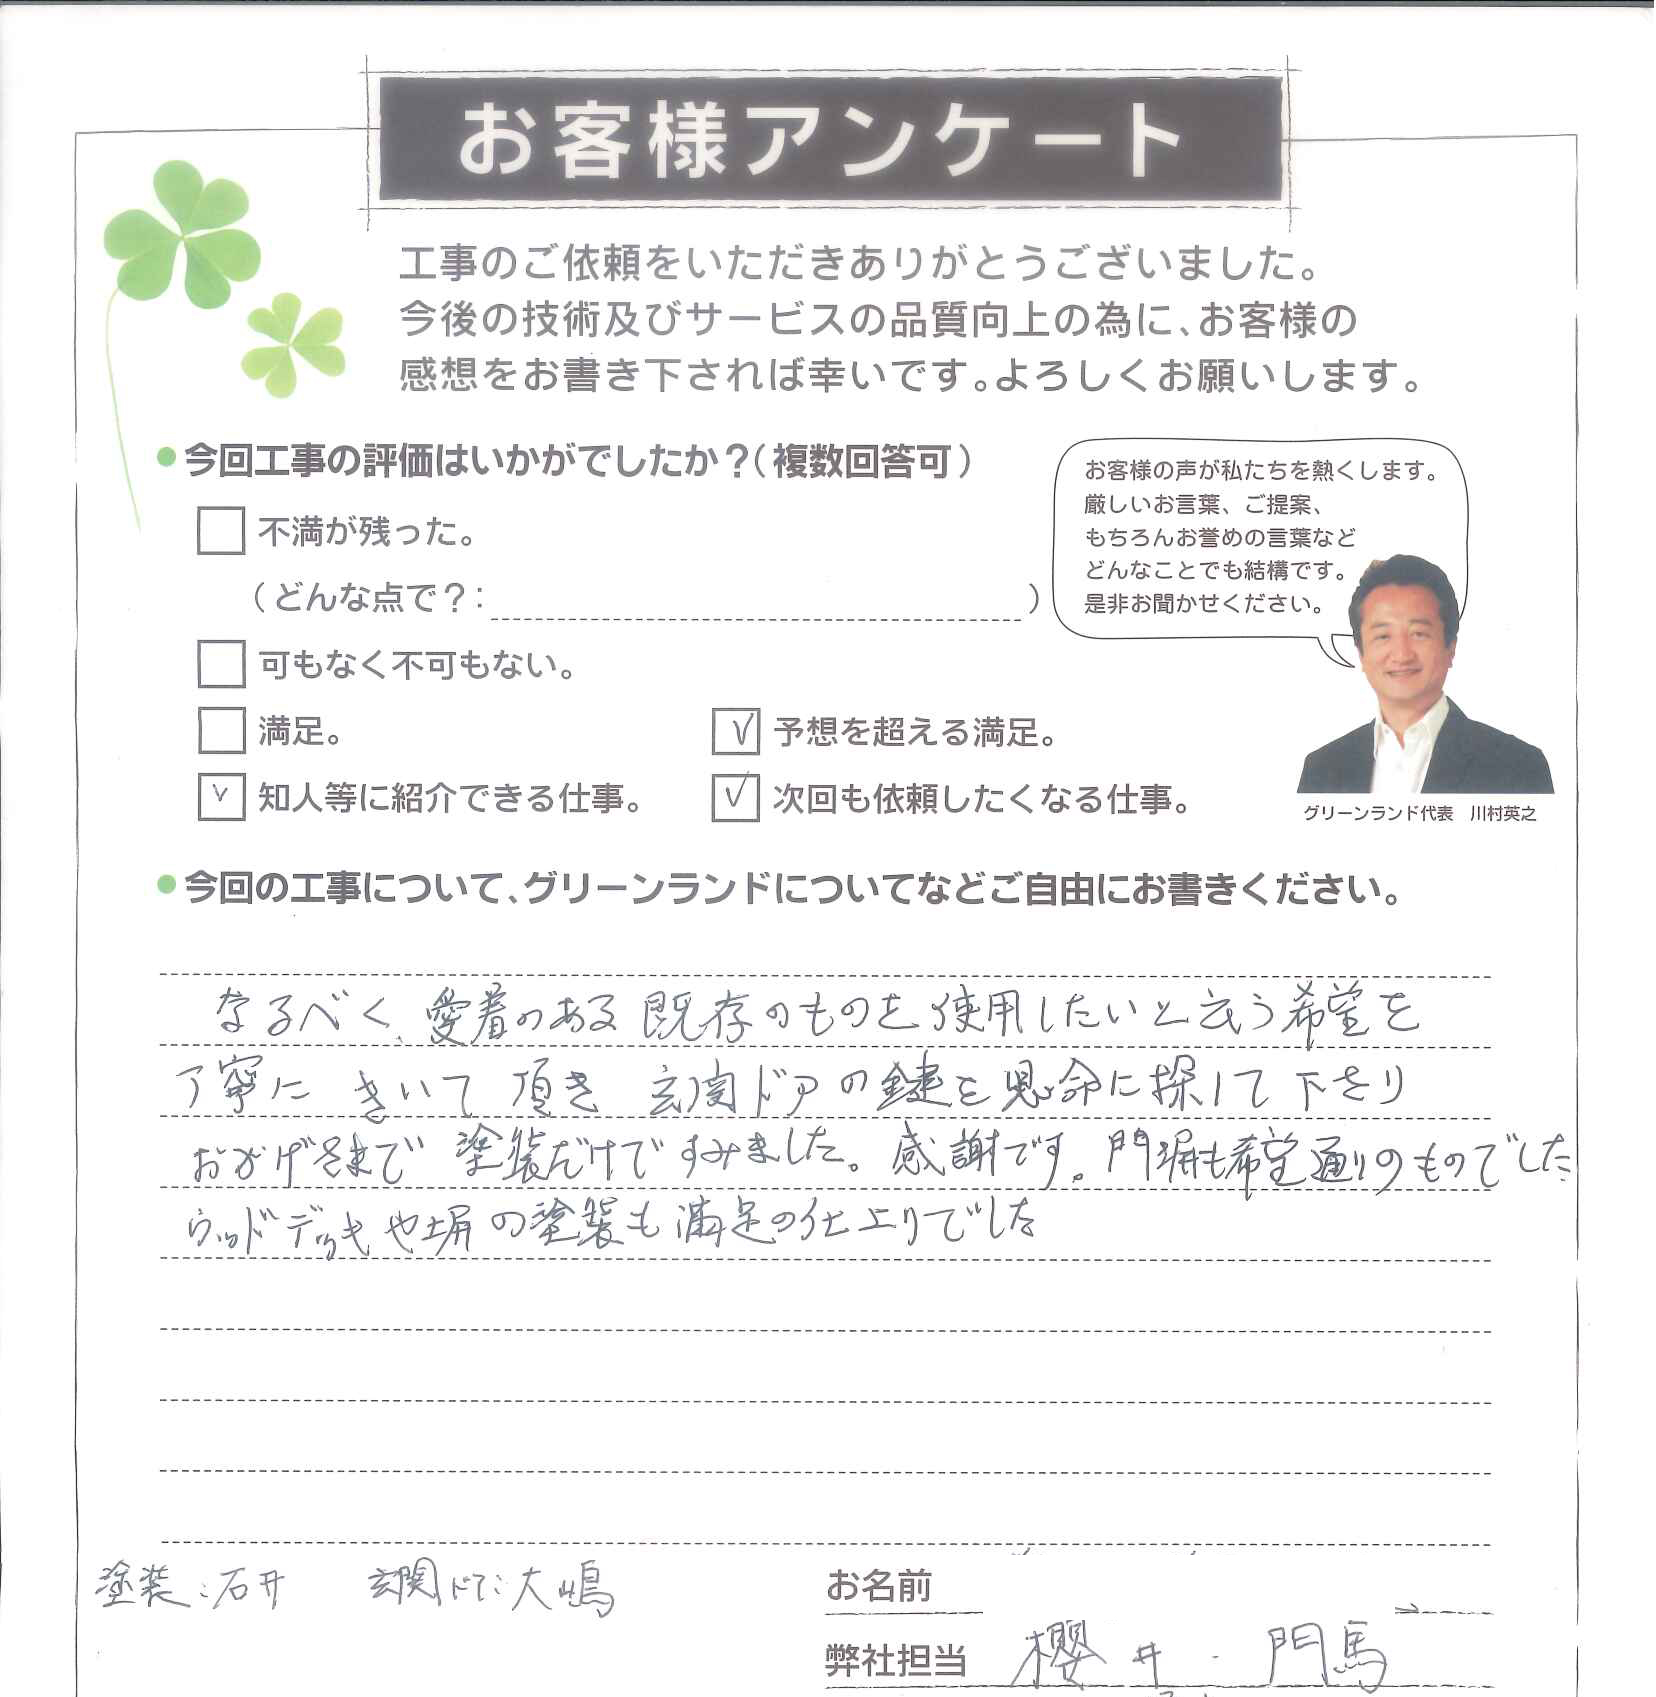 お客様アンケート
工事のご依頼をいただきありがとうございました。
今後の技術及びサービスの品質向上の為に、お客様の
感想をお書き下されば幸いです。よろしくお願いします。
今回工事の評価はいかがでしたか？(複数回答可)
不満が残った。
(どんな点で？: )
可もなく不可もない。
満足。
予想を超える満足。
知人等に紹介できる仕事。
次回も依頼したくなる仕事。
お客様の声が私たちを熱くします。
厳しいお言葉、ご提案、
もちろんお誉めの言葉など
どんなことでも結構です。
是非お聞かせください。
グリーンランド代表　川村英之
今回の工事について、グリーンランドについてなどご自由にお書きください。
なるべく、愛着のある既存のものを使用したいと云う希望を
丁寧に きいて 頂き 玄関ドアの鍵を 懸命に探して下さり
おかげさまで 塗装だけですみました。感謝です。門塀も希望通りのものでした
ウッドデッキや塀の塗装も満足の仕上りでした
塗装:石井　玄関ドア:大嶋
お名前
弊社担当 櫻井・門馬